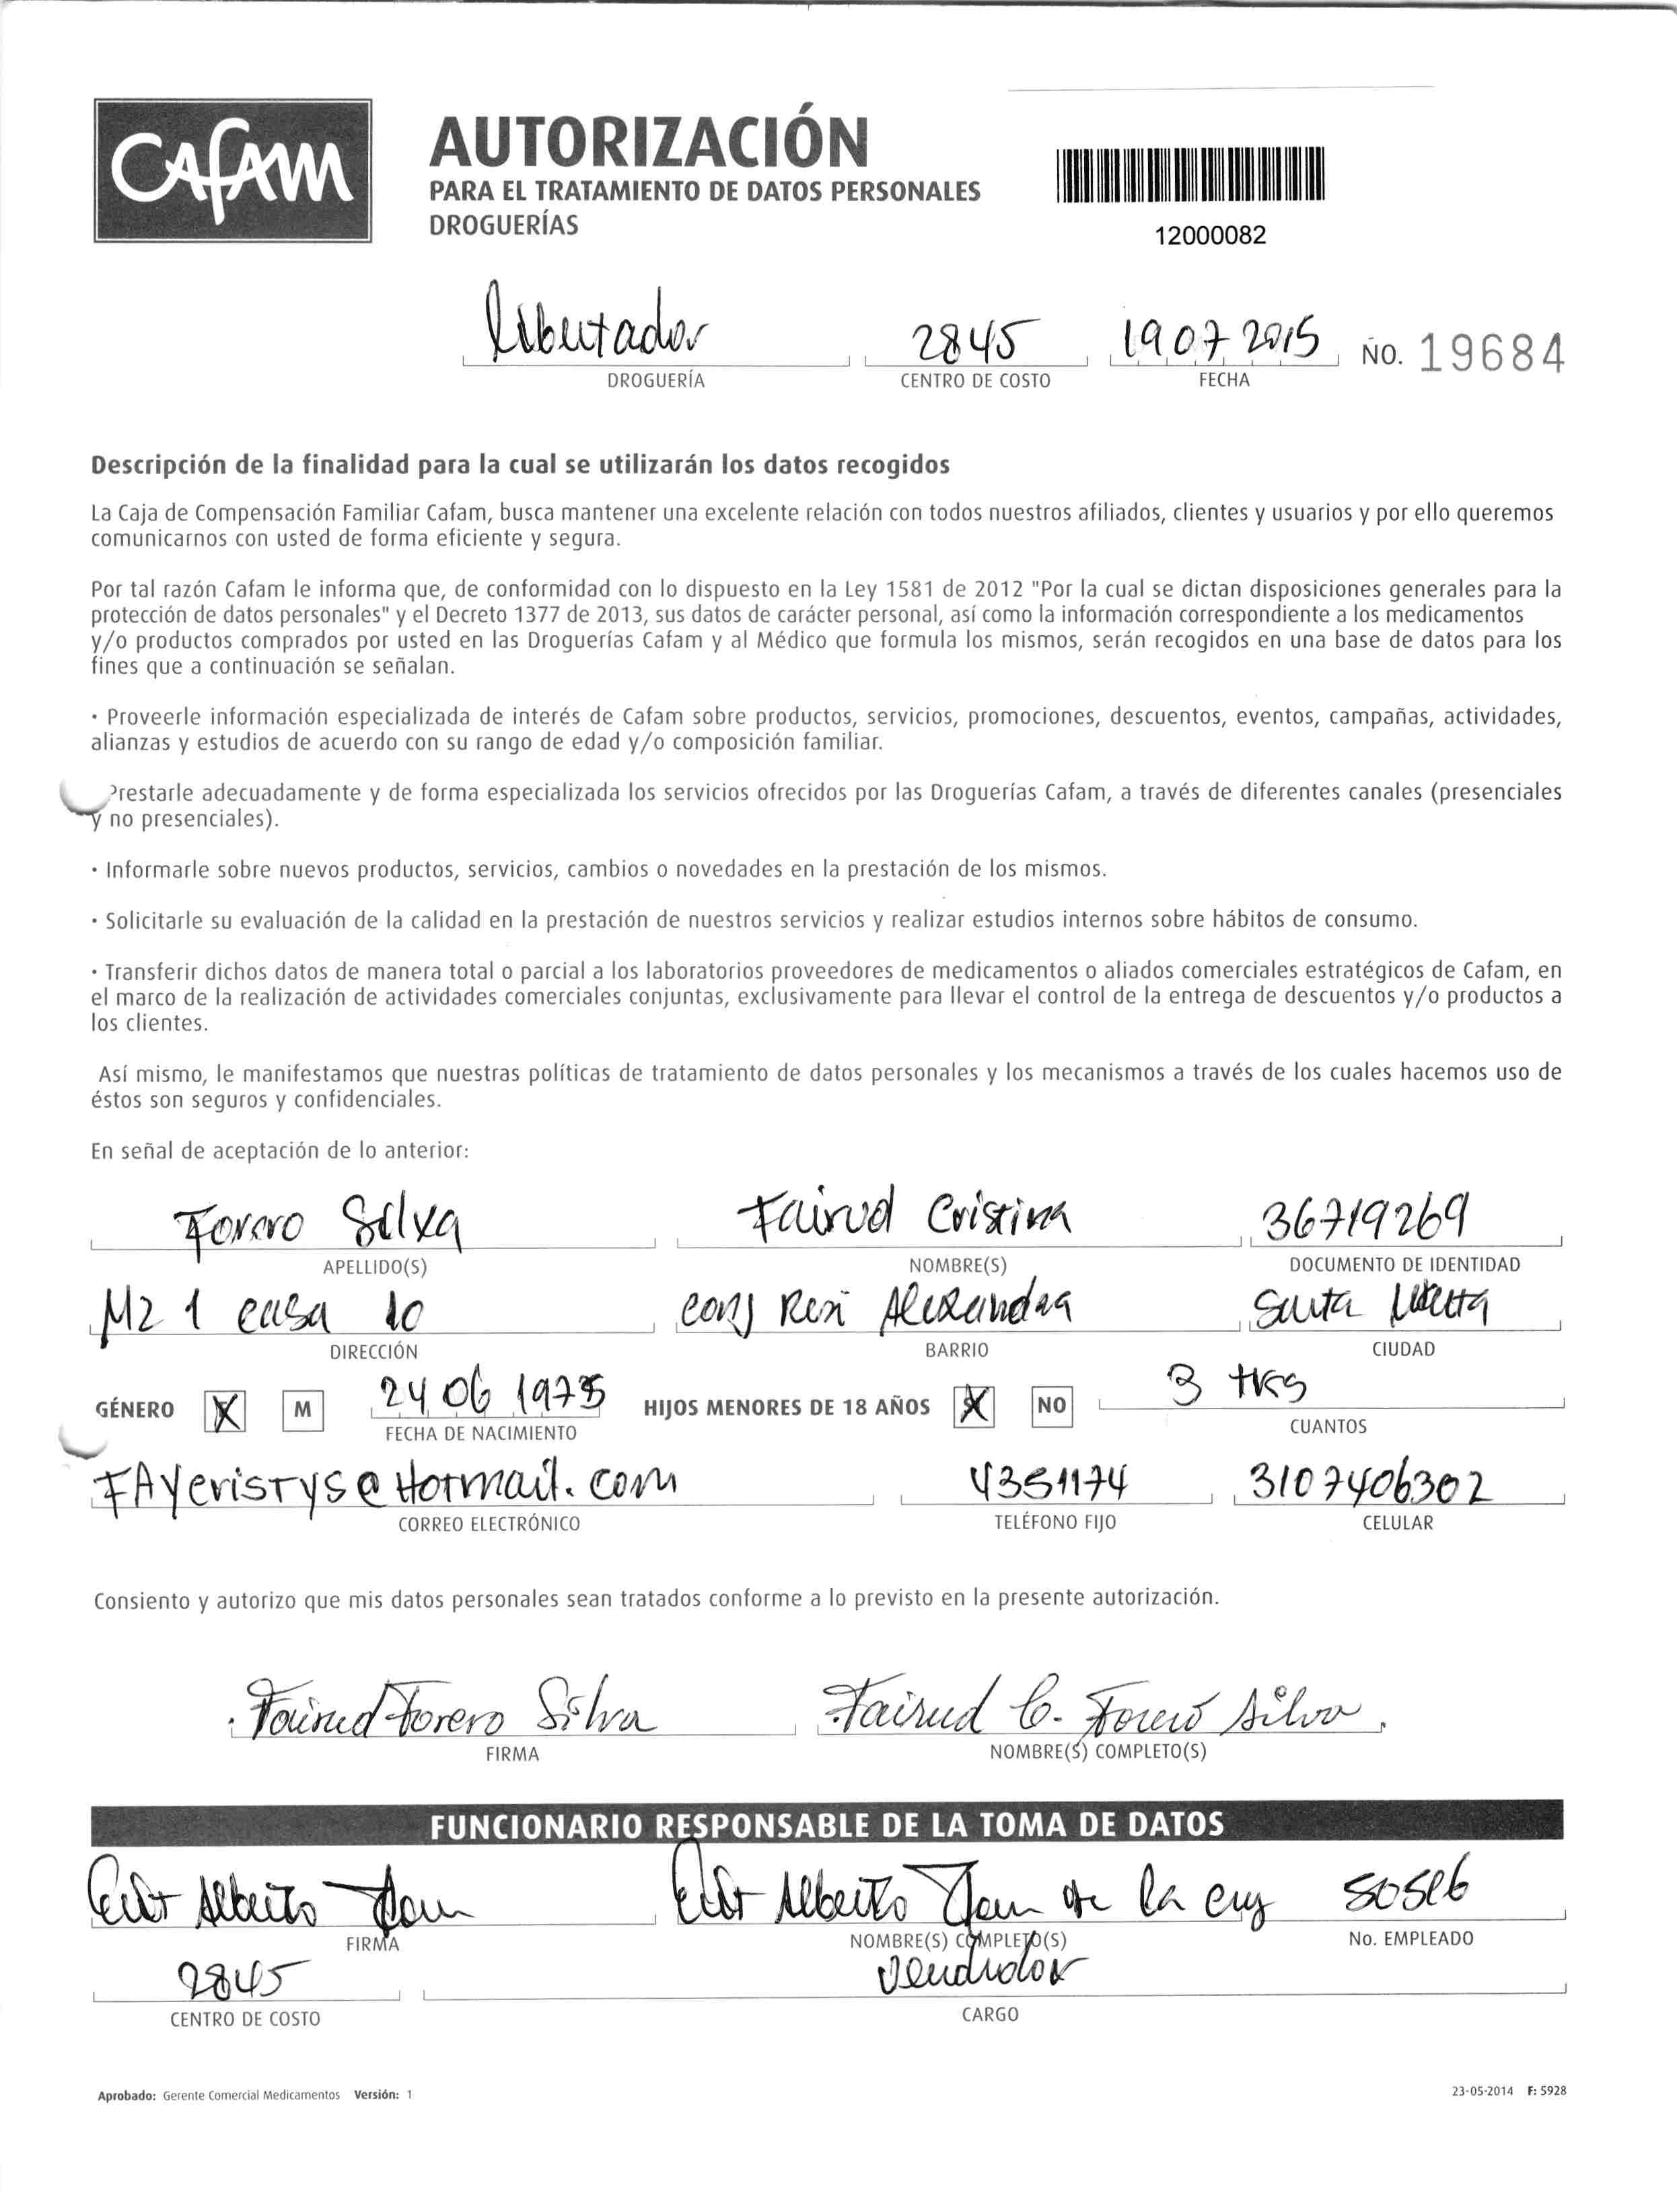 CAFAM
AUTORIZACIÓN
PARA EL TRATAMIENTO DE DATOS PERSONALES
DROGUERÍAS
12000082
Libertador 2845 19 07 2015 NO. 19684
DROGUERÍA CENTRO DE COSTO FECHA
Descripción de la finalidad para la cual se utilizarán los datos recogidos
La Caja de Compensación Familiar Cafam, busca mantener una excelente relación con todos nuestros afiliados, clientes y usuarios y por ello queremos
comunicarnos con usted de forma eficiente y segura.
Por tal razón Cafam le informa que, de conformidad con lo dispuesto en la Ley 1581 de 2012 "Por la cual se dictan disposiciones generales para la
protección de datos personales" y el Decreto 1377 de 2013, sus datos de carácter personal, así como la información correspondiente a los medicamentos
y/o productos comprados por usted en las Droguerías Cafam y al Médico que formula los mismos, serán recogidos en una base de datos para los
fines que a continuación se señalan.
· Proveerle información especializada de interés de Cafam sobre productos, servicios, promociones, descuentos, eventos, campañas, actividades,
alianzas y estudios de acuerdo con su rango de edad y/o composición familiar.
Prestarle adecuadamente y de forma especializada los servicios ofrecidos por las Droguerías Cafam, a través de diferentes canales (presenciales
y no presenciales).
· Informarle sobre nuevos productos, servicios, cambios o novedades en la prestación de los mismos.
· Solicitarle su evaluación de la calidad en la prestación de nuestros servicios y realizar estudios internos sobre hábitos de consumo.
· Transferir dichos datos de manera total o parcial a los laboratorios proveedores de medicamentos o aliados comerciales estratégicos de Cafam, en
el marco de la realización de actividades comerciales conjuntas, exclusivamente para llevar el control de la entrega de descuentos y/o productos a
los clientes.
Así mismo, le manifestamos que nuestras políticas de tratamiento de datos personales y los mecanismos a través de los cuales hacemos uso de
éstos son seguros y confidenciales.
En señal de aceptación de lo anterior:
Forero Silva Fairud Cristina 36719269
APELLIDO(S) NOMBRE(S) DOCUMENTO DE IDENTIDAD
Mz 1 casa 10 conj Resi Alexandra Santa Marta
DIRECCIÓN BARRIO CIUDAD
GÉNERO X M 24 06 1975 HIJOS MENORES DE 18 AÑOS X NO 3 tres
FECHA DE NACIMIENTO CUANTOS
FAYcristys@Hotmail.com 4351174 3107406302
CORREO ELECTRÓNICO TELÉFONO FIJO CELULAR
Consiento y autorizo que mis datos personales sean tratados conforme a lo previsto en la presente autorización.
Fairud Forero Silva Fairud C. Forero Silva.
FIRMA NOMBRE(S) COMPLETO(S)
FUNCIONARIO RESPONSABLE DE LA TOMA DE DATOS
Alberto Alberto de la
FIRMA NOMBRE(S) COMPLETO(S) No. EMPLEADO
2845 Vendedor
CENTRO DE COSTO CARGO
Aprobado: Gerente Comercial Medicamentos Versión: 1 23-05-2014 F: 5928